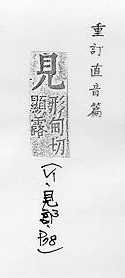 重訂直音篇
見形甸切
顯露
(卷一·見部·P38)